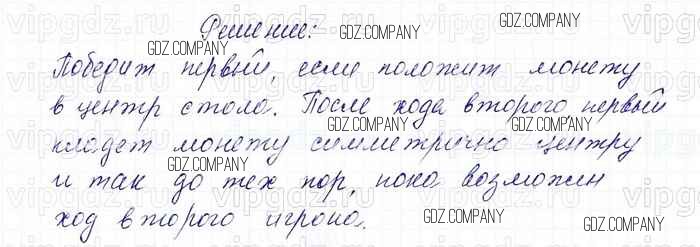 Решение:
Победит первый, если положит монету
в центр стола. После хода второго первый
кладет монету симметрично центру
и так до тех пор, пока возможен
ход второго игрока.
GDZ.COMPANY
GDZ.COMPANY
GDZ.COMPANY
GDZ.COMPANY
GDZ.COMPANY
GDZ.COMPANY
GDZ.COMPANY
GDZ.COMPANY